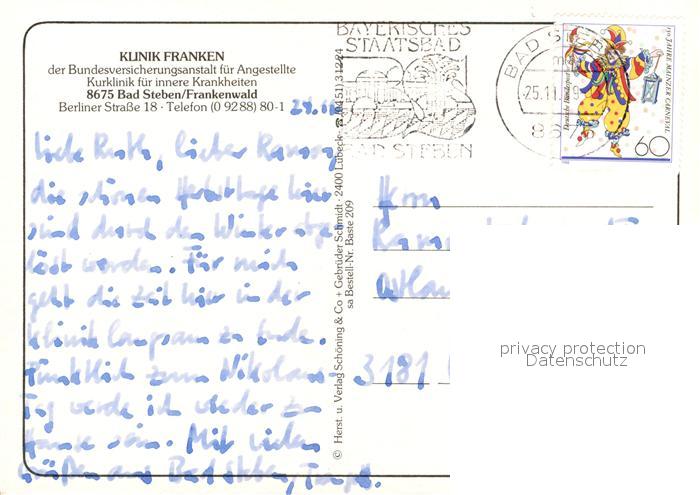 KLINIK FRANKEN
der Bundesversicherungsanstalt für Angestellte
Kurklinik für innere Krankheiten
8675 Bad Steben/Frankenwald
Berliner Straße 18 · Telefon (0 92 88) 80-1
Liebe Ruth, lieber
die schönen Herbsttage hier
sind durch den Winter abge
löst worden. Für mich
geht die Zeit hier in der
Klinik langsam zu Ende.
Pünktlich zum Nikolaus-
Tag werde ich wieder zu
Hause sein. Mit vielen
Grüßen aus Bad Steben,
BAYERISCHES
STAATSBAD
BAD STEBEN
BAD STEBEN
25.11.
Deutsche Bundespost
150 JAHRE MAINZER CARNEVAL
60
© Herst. u. Verlag Schöning & Co + Gebrüder Schmidt · 2400 Lübeck
sa Bestell-Nr. Baste 209
Herrn
3181
privacy protection
Datenschutz